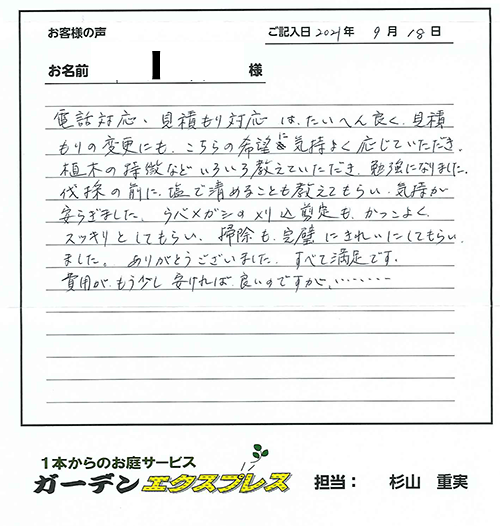 お客様の声
ご記入日 2021年 9月 18日
お名前 様
電話対応、見積もり対応は、たいへん良く、見積
もりの変更にも、こちらの希望に気持よく応じていただき、
植木の特徴などいろいろ教えていただき、勉強になりました。
伐採の前に、塩で清めることも教えてもらい、気持が
安らぎました。ウバメガシの刈り込剪定も、かっこよく、
スッキリとしてもらい、掃除も、完璧にきれいにしてもらい
ました。ありがとうございました。すべて満足です。
費用が、もう少し安ければ、良いのですが、‥‥‥‥
1本からのお庭サービス
ガーデンエクスプレス
担当： 杉山 重実